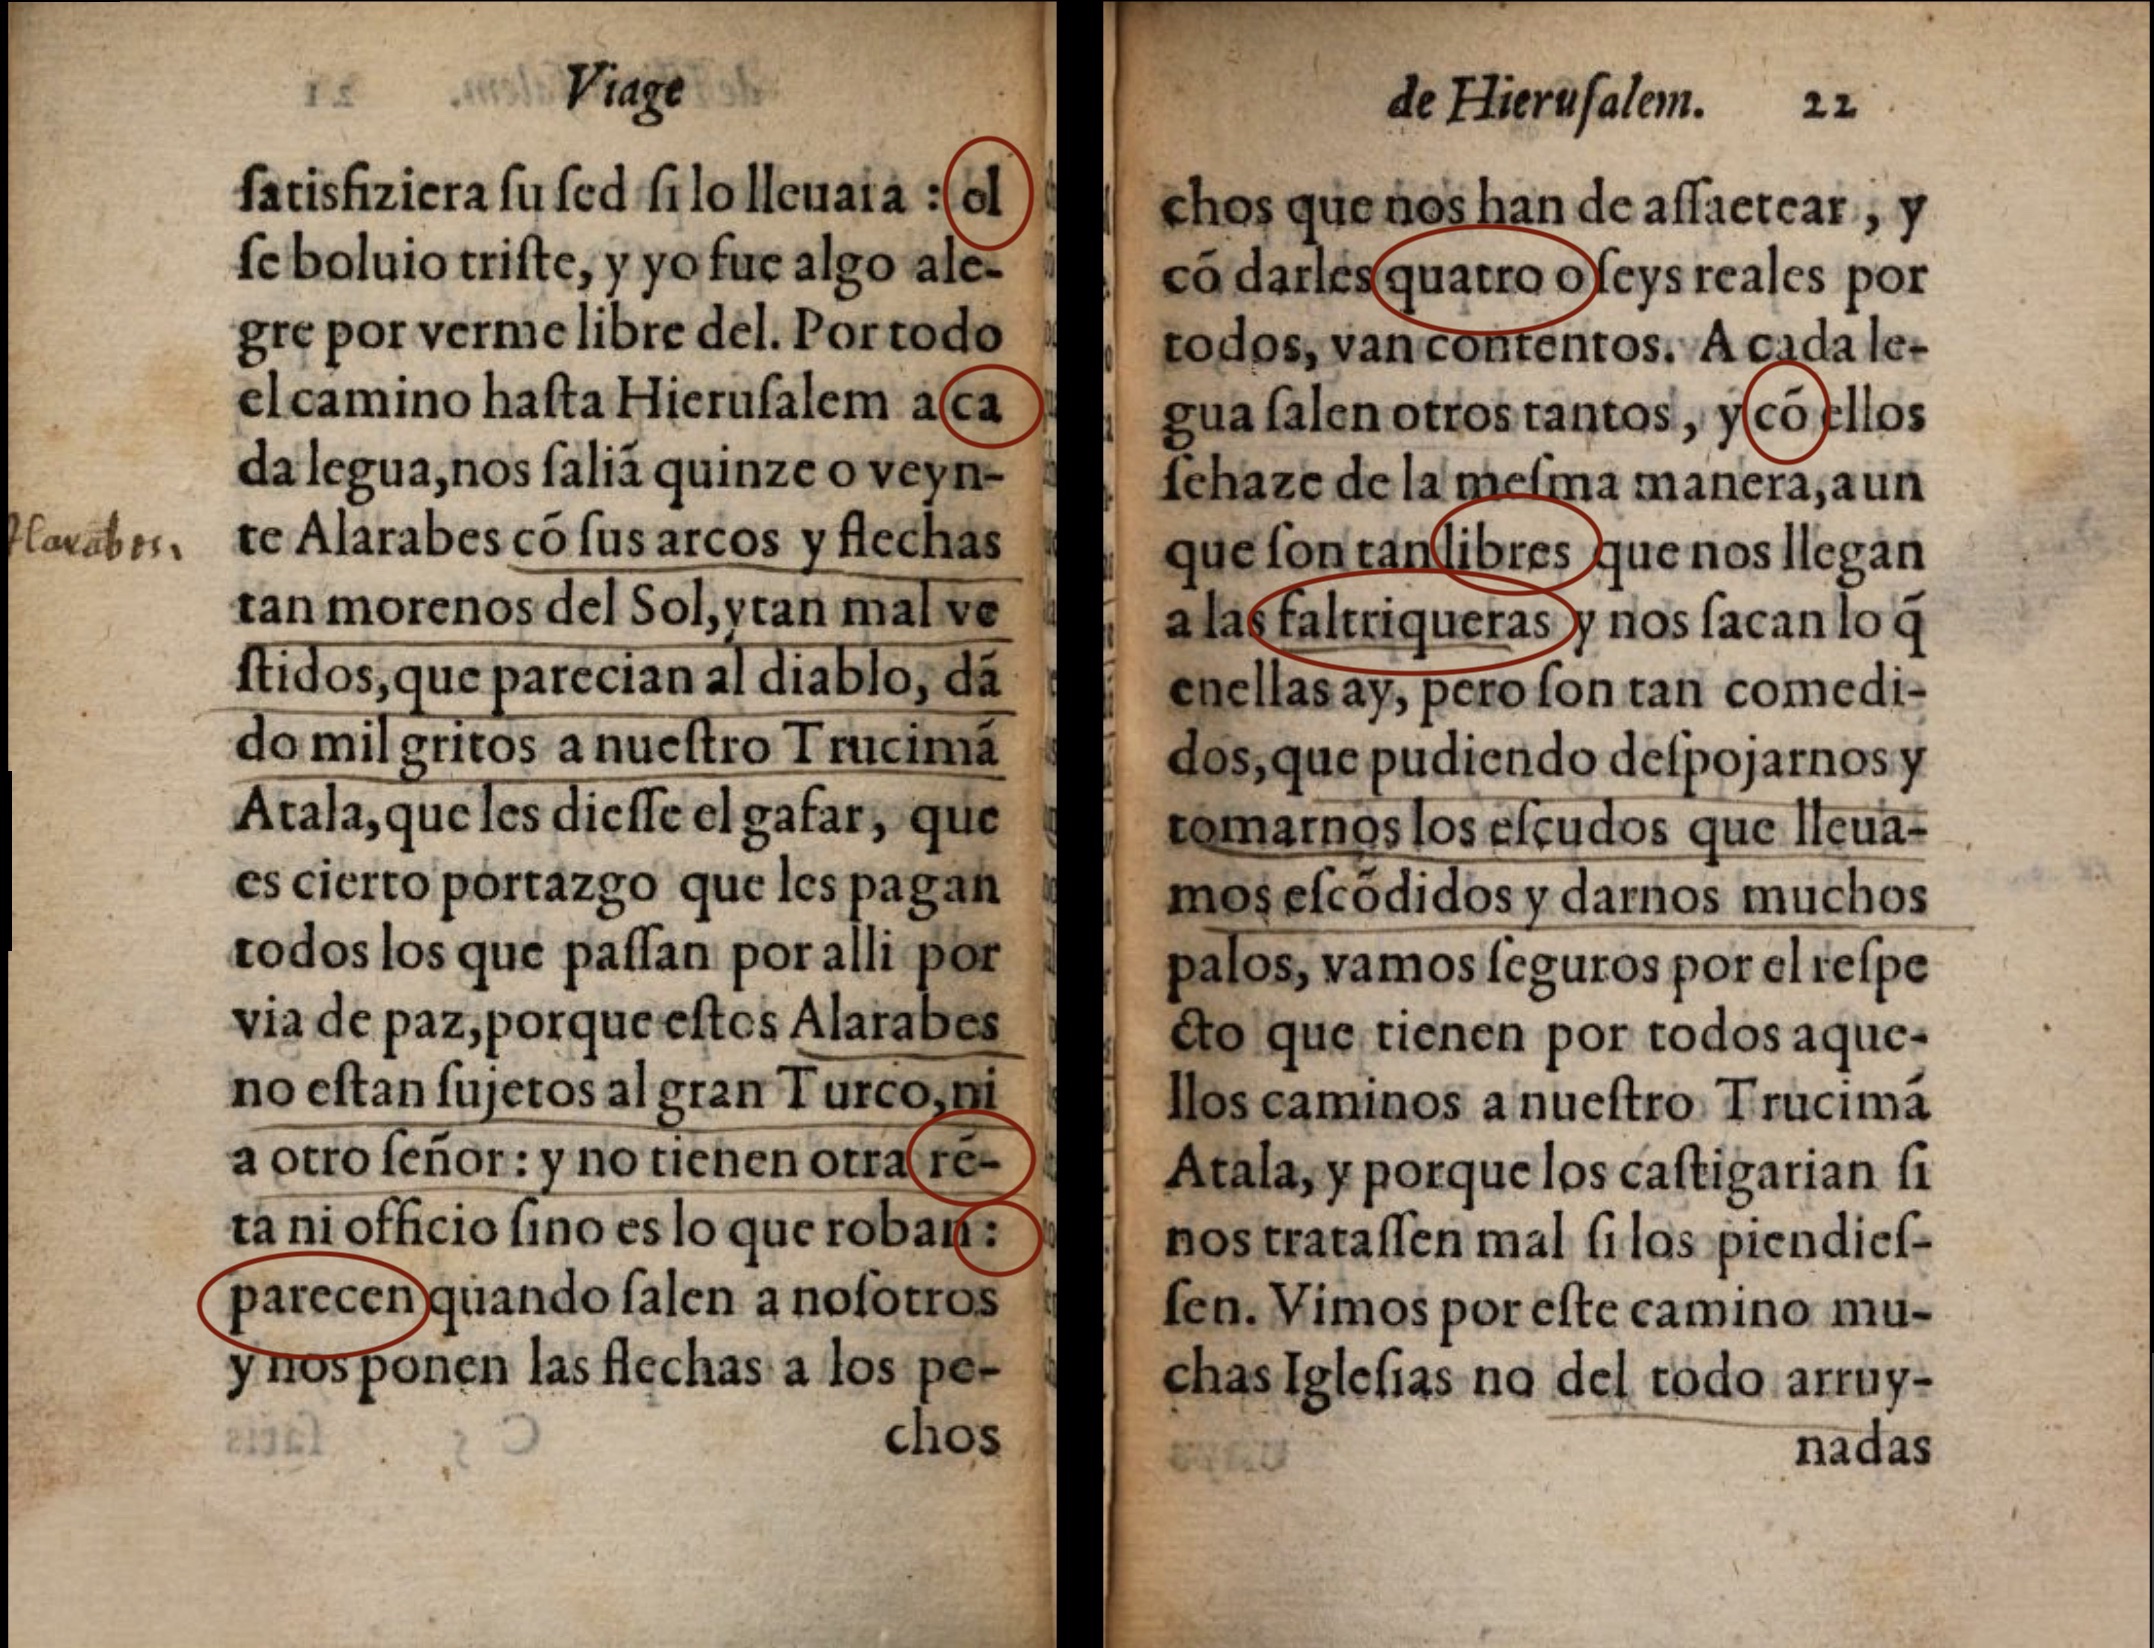 Viage
ſatisfiziera ſu ſed ſi lo lleuara : el
ſe boluio triſte, y yo fue algo ale-
gre por verme libre del. Por todo
el camino haſta Hieruſalem a ca
da legua,nos ſaliā quinze o veyn-
te Alarabes cō ſus arcos y flechas
tan morenos del Sol,ytan mal ve
ſtidos,que parecian al diablo, dā
do mil gritos a nueſtro Trucimā
Atala,que les dieſſe el gafar, que
es cierto portazgo que les pagan
todos los que paſſan por alli por
via de paz,porque eſtos Alarabes
no eſtan ſujetos al gran Turco,ni
a otro ſeñor : y no tienen otra rē-
ta ni officio ſino es lo que roban :
parecen quando ſalen a noſotros
y nos ponen las flechas a los pe-
chos
Alarabes.
de Hieruſalem. 22
chos que nos han de aſſaetear , y
cō darles quatro o ſeys reales por
todos, van contentos. A cada le-
gua ſalen otros tantos , y cō ellos
ſehaze de la meſma manera,aun
que ſon tan libres que nos llegan
a las faltriqueras y nos ſacan lo q̄
enellas ay, pero ſon tan comedi-
dos,que pudiendo deſpojarnos y
tomarnos los eſcudos que lleua-
mos eſcōdidos y darnos muchos
palos, vamos ſeguros por el reſpe
cto que tienen por todos aque-
llos caminos a nueſtro Trucimā
Atala, y porque los caſtigarian ſi
nos trataſſen mal ſi los piendieſ-
ſen. Vimos por eſte camino mu-
chas Igleſias no del todo arruy-
nadas